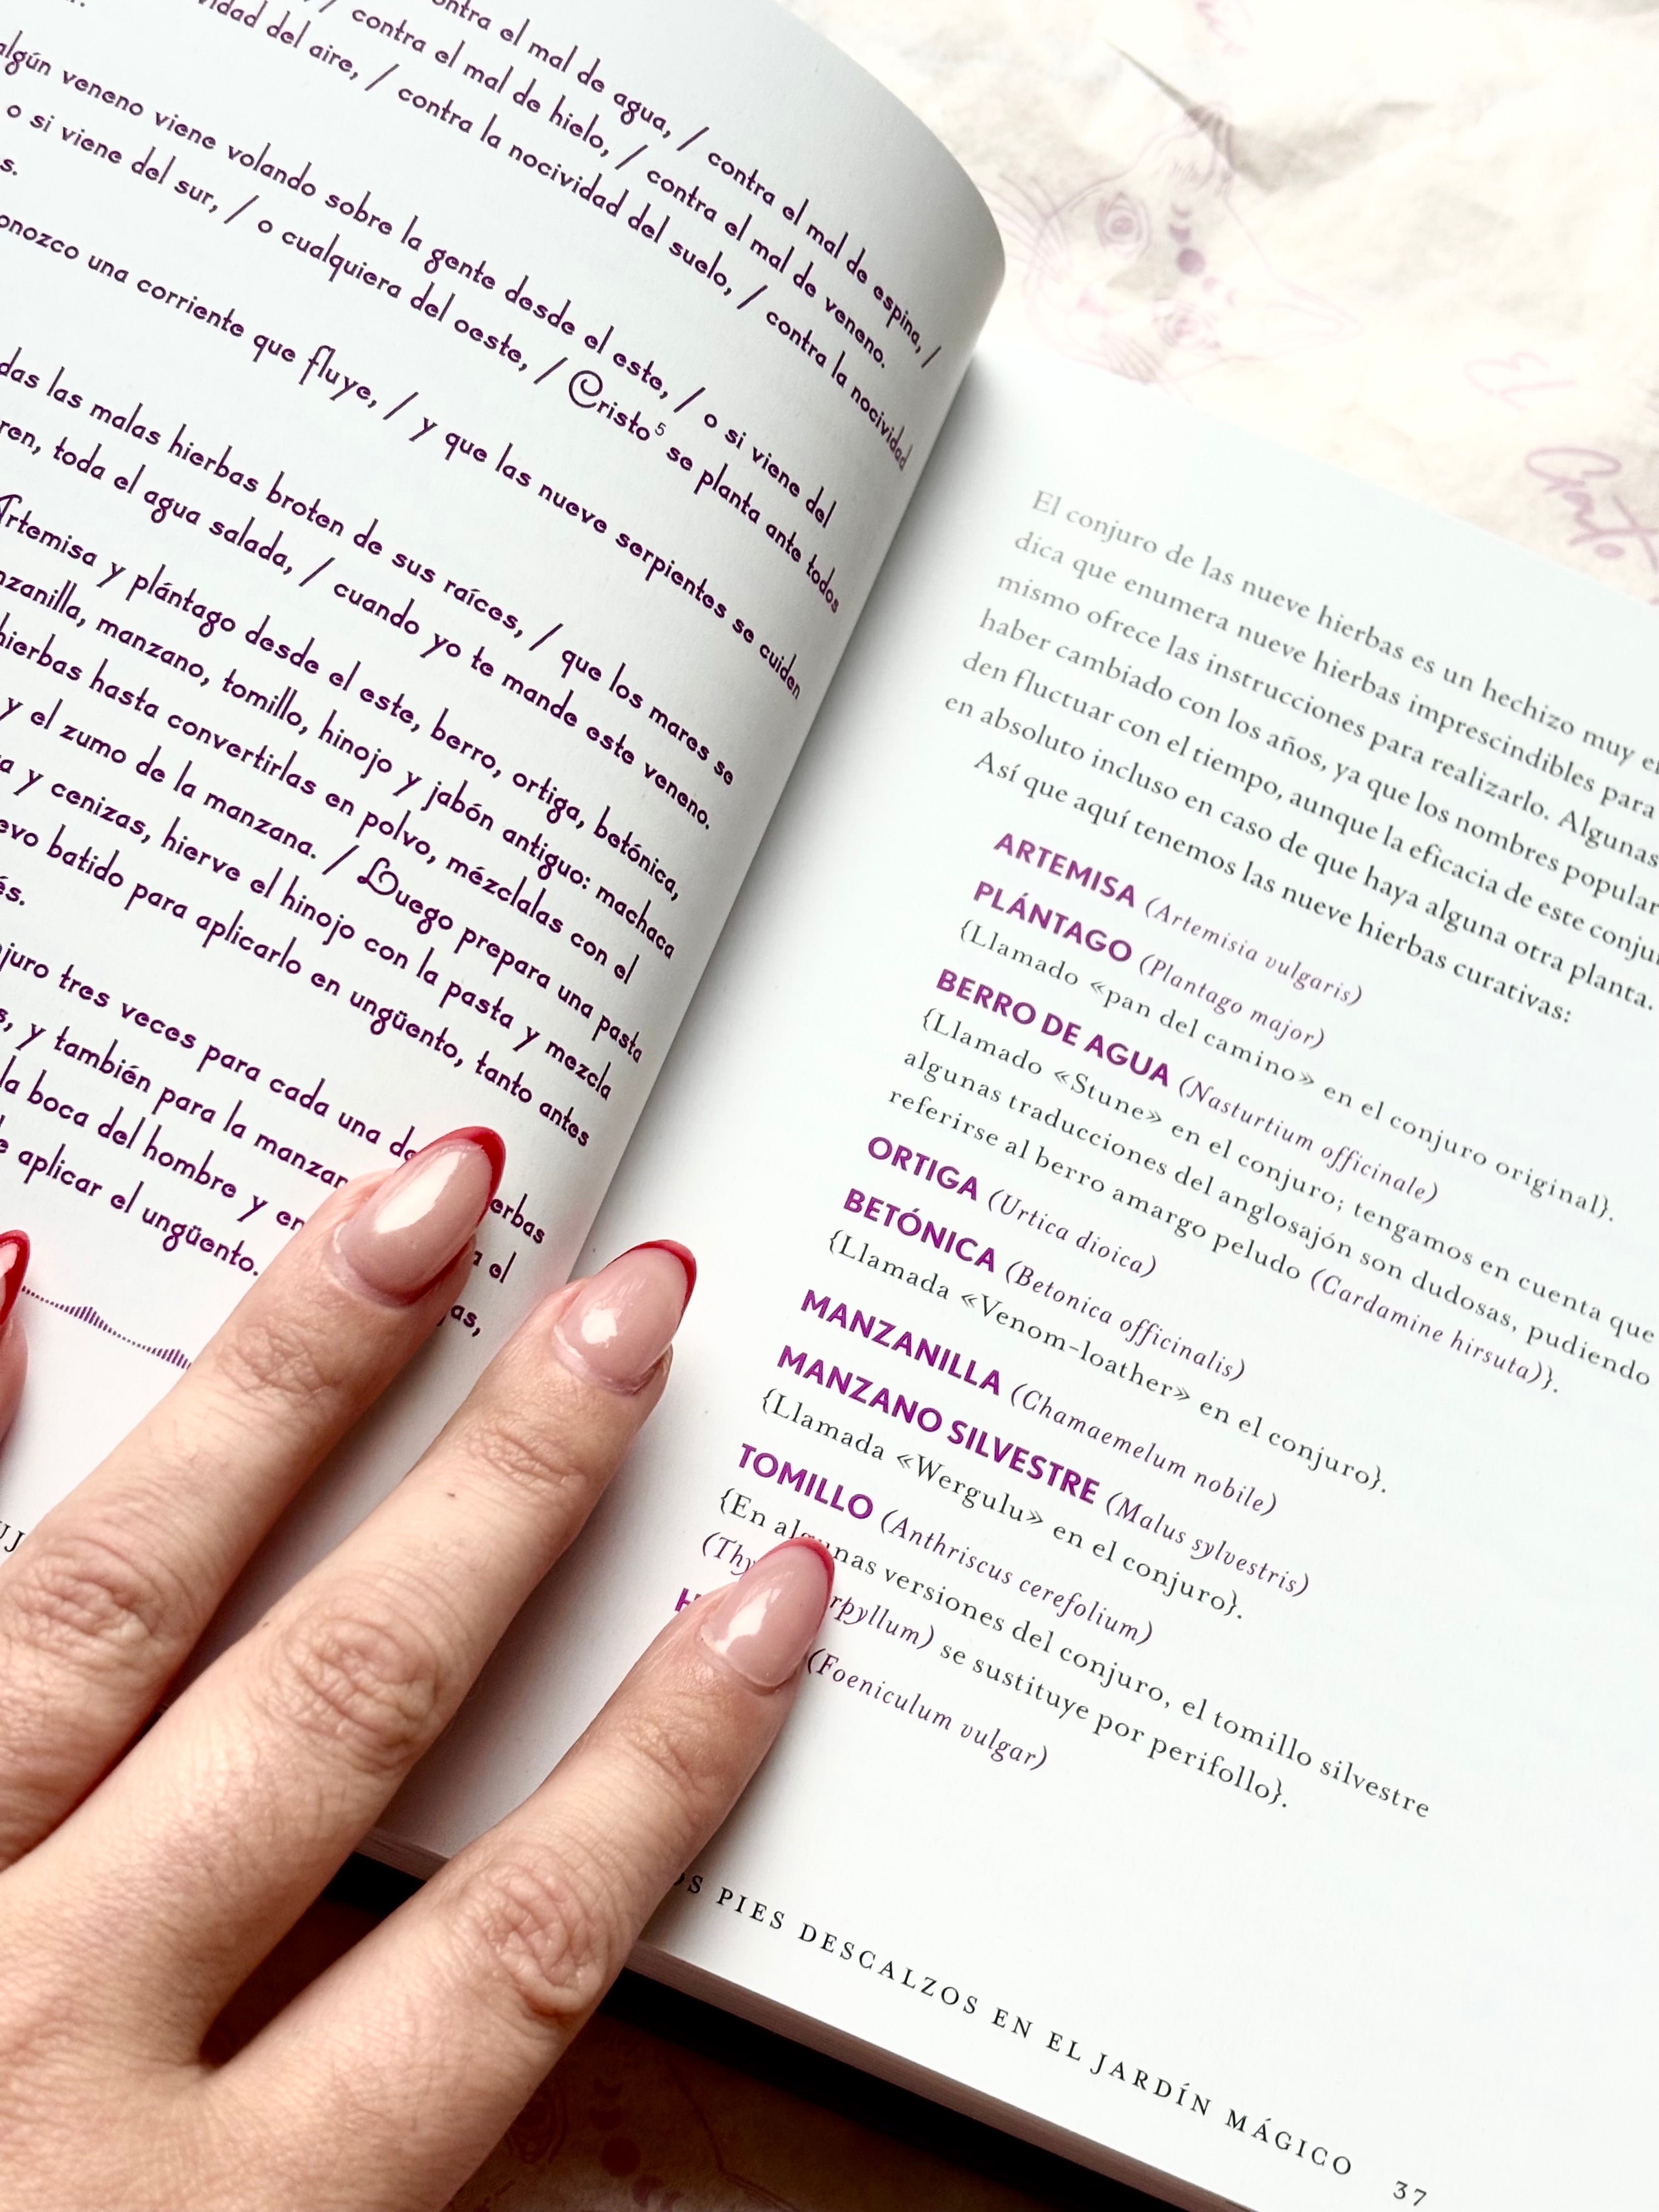 contra el mal de agua, / contra el mal de espina, /
contra el mal de hielo, / contra el mal de veneno.
del aire, / contra la nocividad del suelo, / contra la nocividad
algún veneno viene volando sobre la gente desde el este, / o si viene del
o si viene del sur, / o cualquiera del oeste, / Cristo⁵ se planta ante todos
una corriente que fluye, / y que las nueve serpientes se cuiden
las malas hierbas broten de sus raíces, / que los mares se
toda el agua salada, / cuando yo te mande este veneno.
Artemisa y plántago desde el este, berro, ortiga, betónica,
manzano, tomillo, hinojo y jabón antiguo: machaca
hierbas hasta convertirlas en polvo, mézclalas con el
y el zumo de la manzana. / Luego prepara una pasta
y cenizas, hierve el hinojo con la pasta y mezcla
batido para aplicarlo en ungüento, tanto antes
tres veces para cada una
y también para la
la boca del hombre y
aplicar el ungüento.
El conjuro de las nueve hierbas es un hechizo muy
dica que enumera nueve hierbas imprescindibles para
mismo ofrece las instrucciones para realizarlo. Algunas
haber cambiado con los años, ya que los nombres
den fluctuar con el tiempo, aunque la eficacia de este
en absoluto incluso en caso de que haya alguna otra planta.
Así que aquí tenemos las nueve hierbas curativas:
ARTEMISA (Artemisia vulgaris)
PLÁNTAGO (Plantago major)
{Llamado «pan del camino» en el conjuro original}.
BERRO DE AGUA (Nasturtium officinale)
{Llamado «Stune» en el conjuro; tengamos en cuenta que
algunas traducciones del anglosajón son dudosas, pudiendo
referirse al berro amargo peludo (Cardamine hirsuta)}.
ORTIGA (Urtica dioica)
BETÓNICA (Betonica officinalis)
{Llamada «Venom-loather» en el conjuro}.
MANZANILLA (Chamaemelum nobile)
MANZANO SILVESTRE (Malus sylvestris)
{Llamada «Wergulu» en el conjuro}.
TOMILLO (Anthriscus cerefolium)
{En algunas versiones del conjuro, el tomillo silvestre
se sustituye por perifollo}.
(Foeniculum vulgar)
PIES DESCALZOS EN EL JARDÍN MÁGICO 37
El
Gato